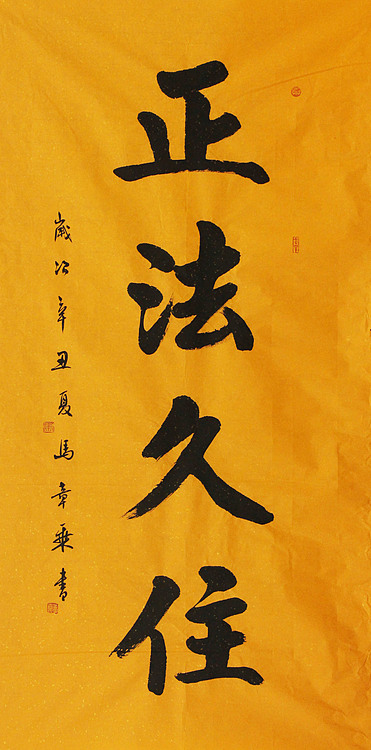 正法久住
歲次辛丑夏馬章乘書